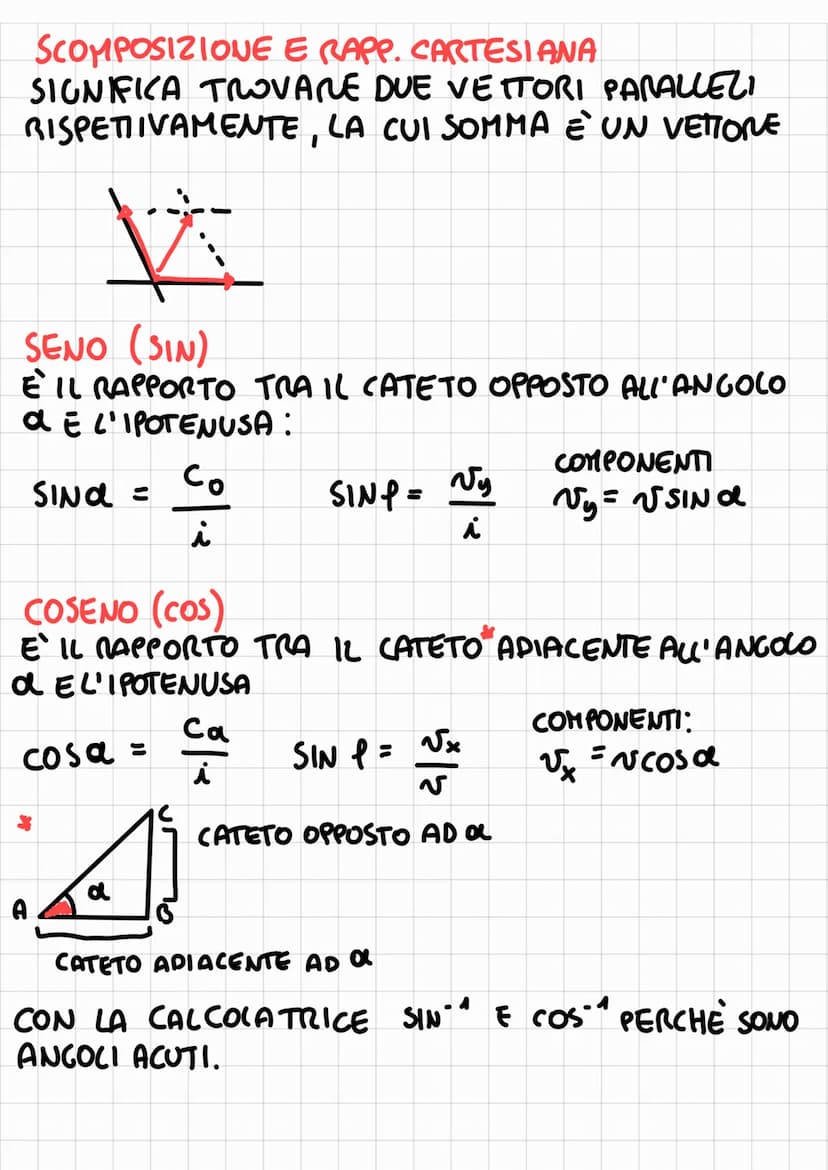 SCOMPOSIZIONE E RAPP. CARTESIANA
SIGNIFICA TROVARE DUE VETTORI PARALLELI
RISPETTIVAMENTE, LA CUI SOMMA È UN VETTORE
SENO (SIN)
È IL RAPPORTO TRA IL CATETO OPPOSTO ALL'ANGOLO
α E L'IPOTENUSA:
SINα = Co/i SINρ = Vy/i COMPONENTI
Vy = V SIN α
COSENO (COS)
E' IL RAPPORTO TRA IL CATETO* ADIACENTE ALL'ANGOLO
α E L'IPOTENUSA
COSα = Ca/i SIN ρ = Vx/V COMPONENTI:
Vx = V COS α
*
C
CATETO OPPOSTO AD α
α
A
B
CATETO ADIACENTE AD α
CON LA CALCOLATRICE SIN⁻¹ E COS⁻¹ PERCHÈ SONO
ANGOLI ACUTI.